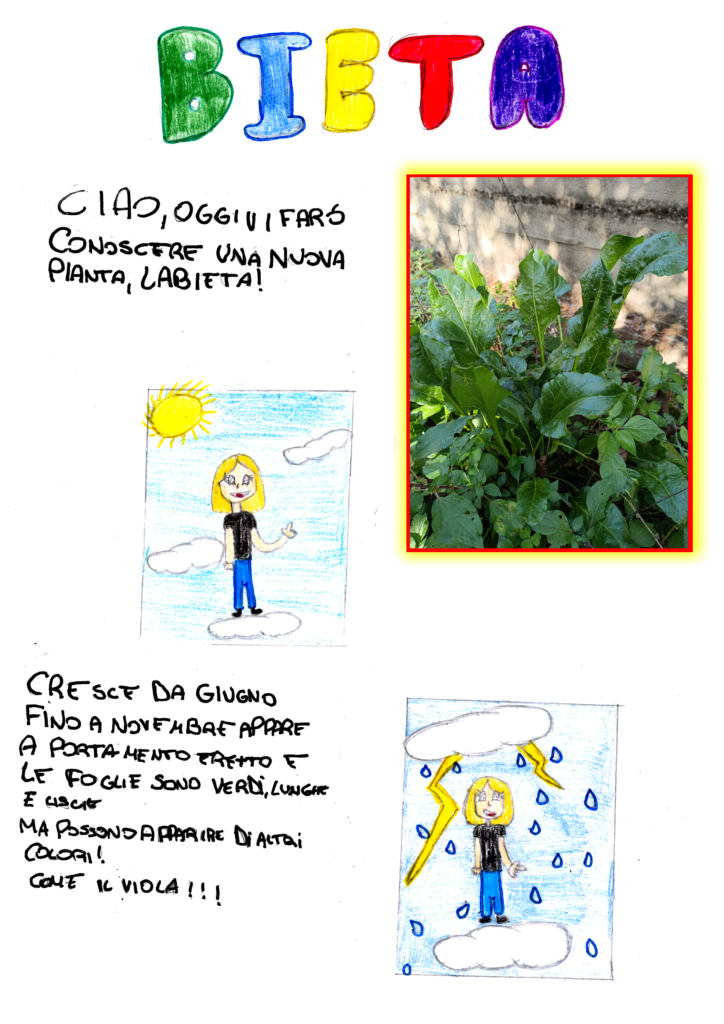 BIETA
CIAO, OGGI VI FARÒ
CONOSCERE UNA NUOVA
PIANTA, LA BIETA!
CRESCE DA GIUGNO
FINO A NOVEMBRE APPARE
A PORTAMENTO ERETTO E
LE FOGLIE SONO VERDI, LUNGHE
E LISCIE
MA POSSONO APPARIRE DI ALTRI
COLORI!
COME IL VIOLA!!!